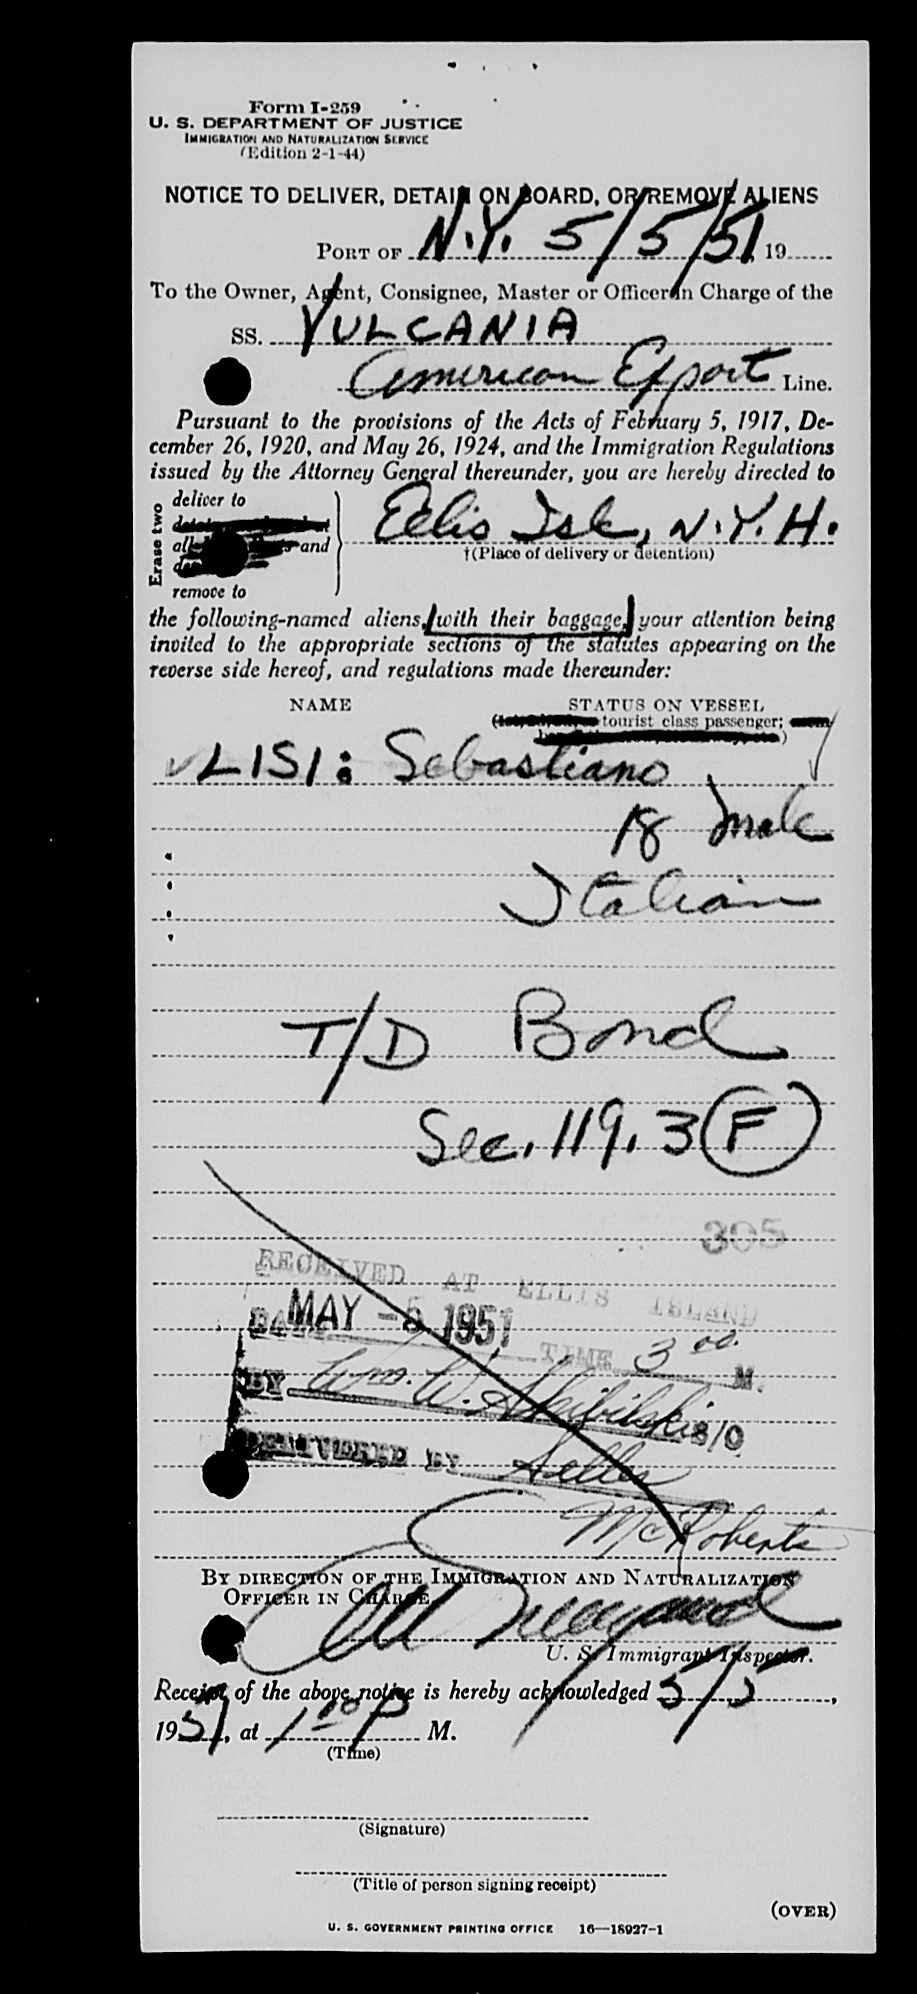 Form I-259
U. S. DEPARTMENT OF JUSTICE
IMMIGRATION AND NATURALIZATION SERVICE
(Edition 2-1-44)
NOTICE TO DELIVER, DETAIN ON BOARD, OR REMOVE ALIENS
PORT OF N.Y. 5/5/51, 19
To the Owner, Agent, Consignee, Master or Officer in Charge of the
SS. VULCANIA
American Export Line.
Pursuant to the provisions of the Acts of February 5, 1917, De-
cember 26, 1920, and May 26, 1924, and the Immigration Regulations
issued by the Attorney General thereunder, you are hereby directed to
Erase two
deliver to
and
remove to
Ellis Isle, N.Y.H.
†(Place of delivery or detention)
the following-named aliens, (with their baggage,) your attention being
invited to the appropriate sections of the statutes appearing on the
reverse side hereof, and regulations made thereunder:
NAME STATUS ON VESSEL
tourist class passenger;
✓LISI: Sebastiano
18 male
Italian
T/D Bond
Sec. 119.3 (F)
305
RECEIVED AT ELLIS ISLAND
DATE MAY -5 1951 TIME 3 00 M.
BY Wm. W. S/O
DELIVERED BY
McRoberts
BY DIRECTION OF THE IMMIGRATION AND NATURALIZATION
OFFICER IN CHARGE
U. S. Immigrant Inspector.
Receipt of the above notice is hereby acknowledged 5/5,
1951, at 1 00 P M.
(Time)
(Signature)
(Title of person signing receipt)
(OVER)
U. S. GOVERNMENT PRINTING OFFICE 16—18927-1